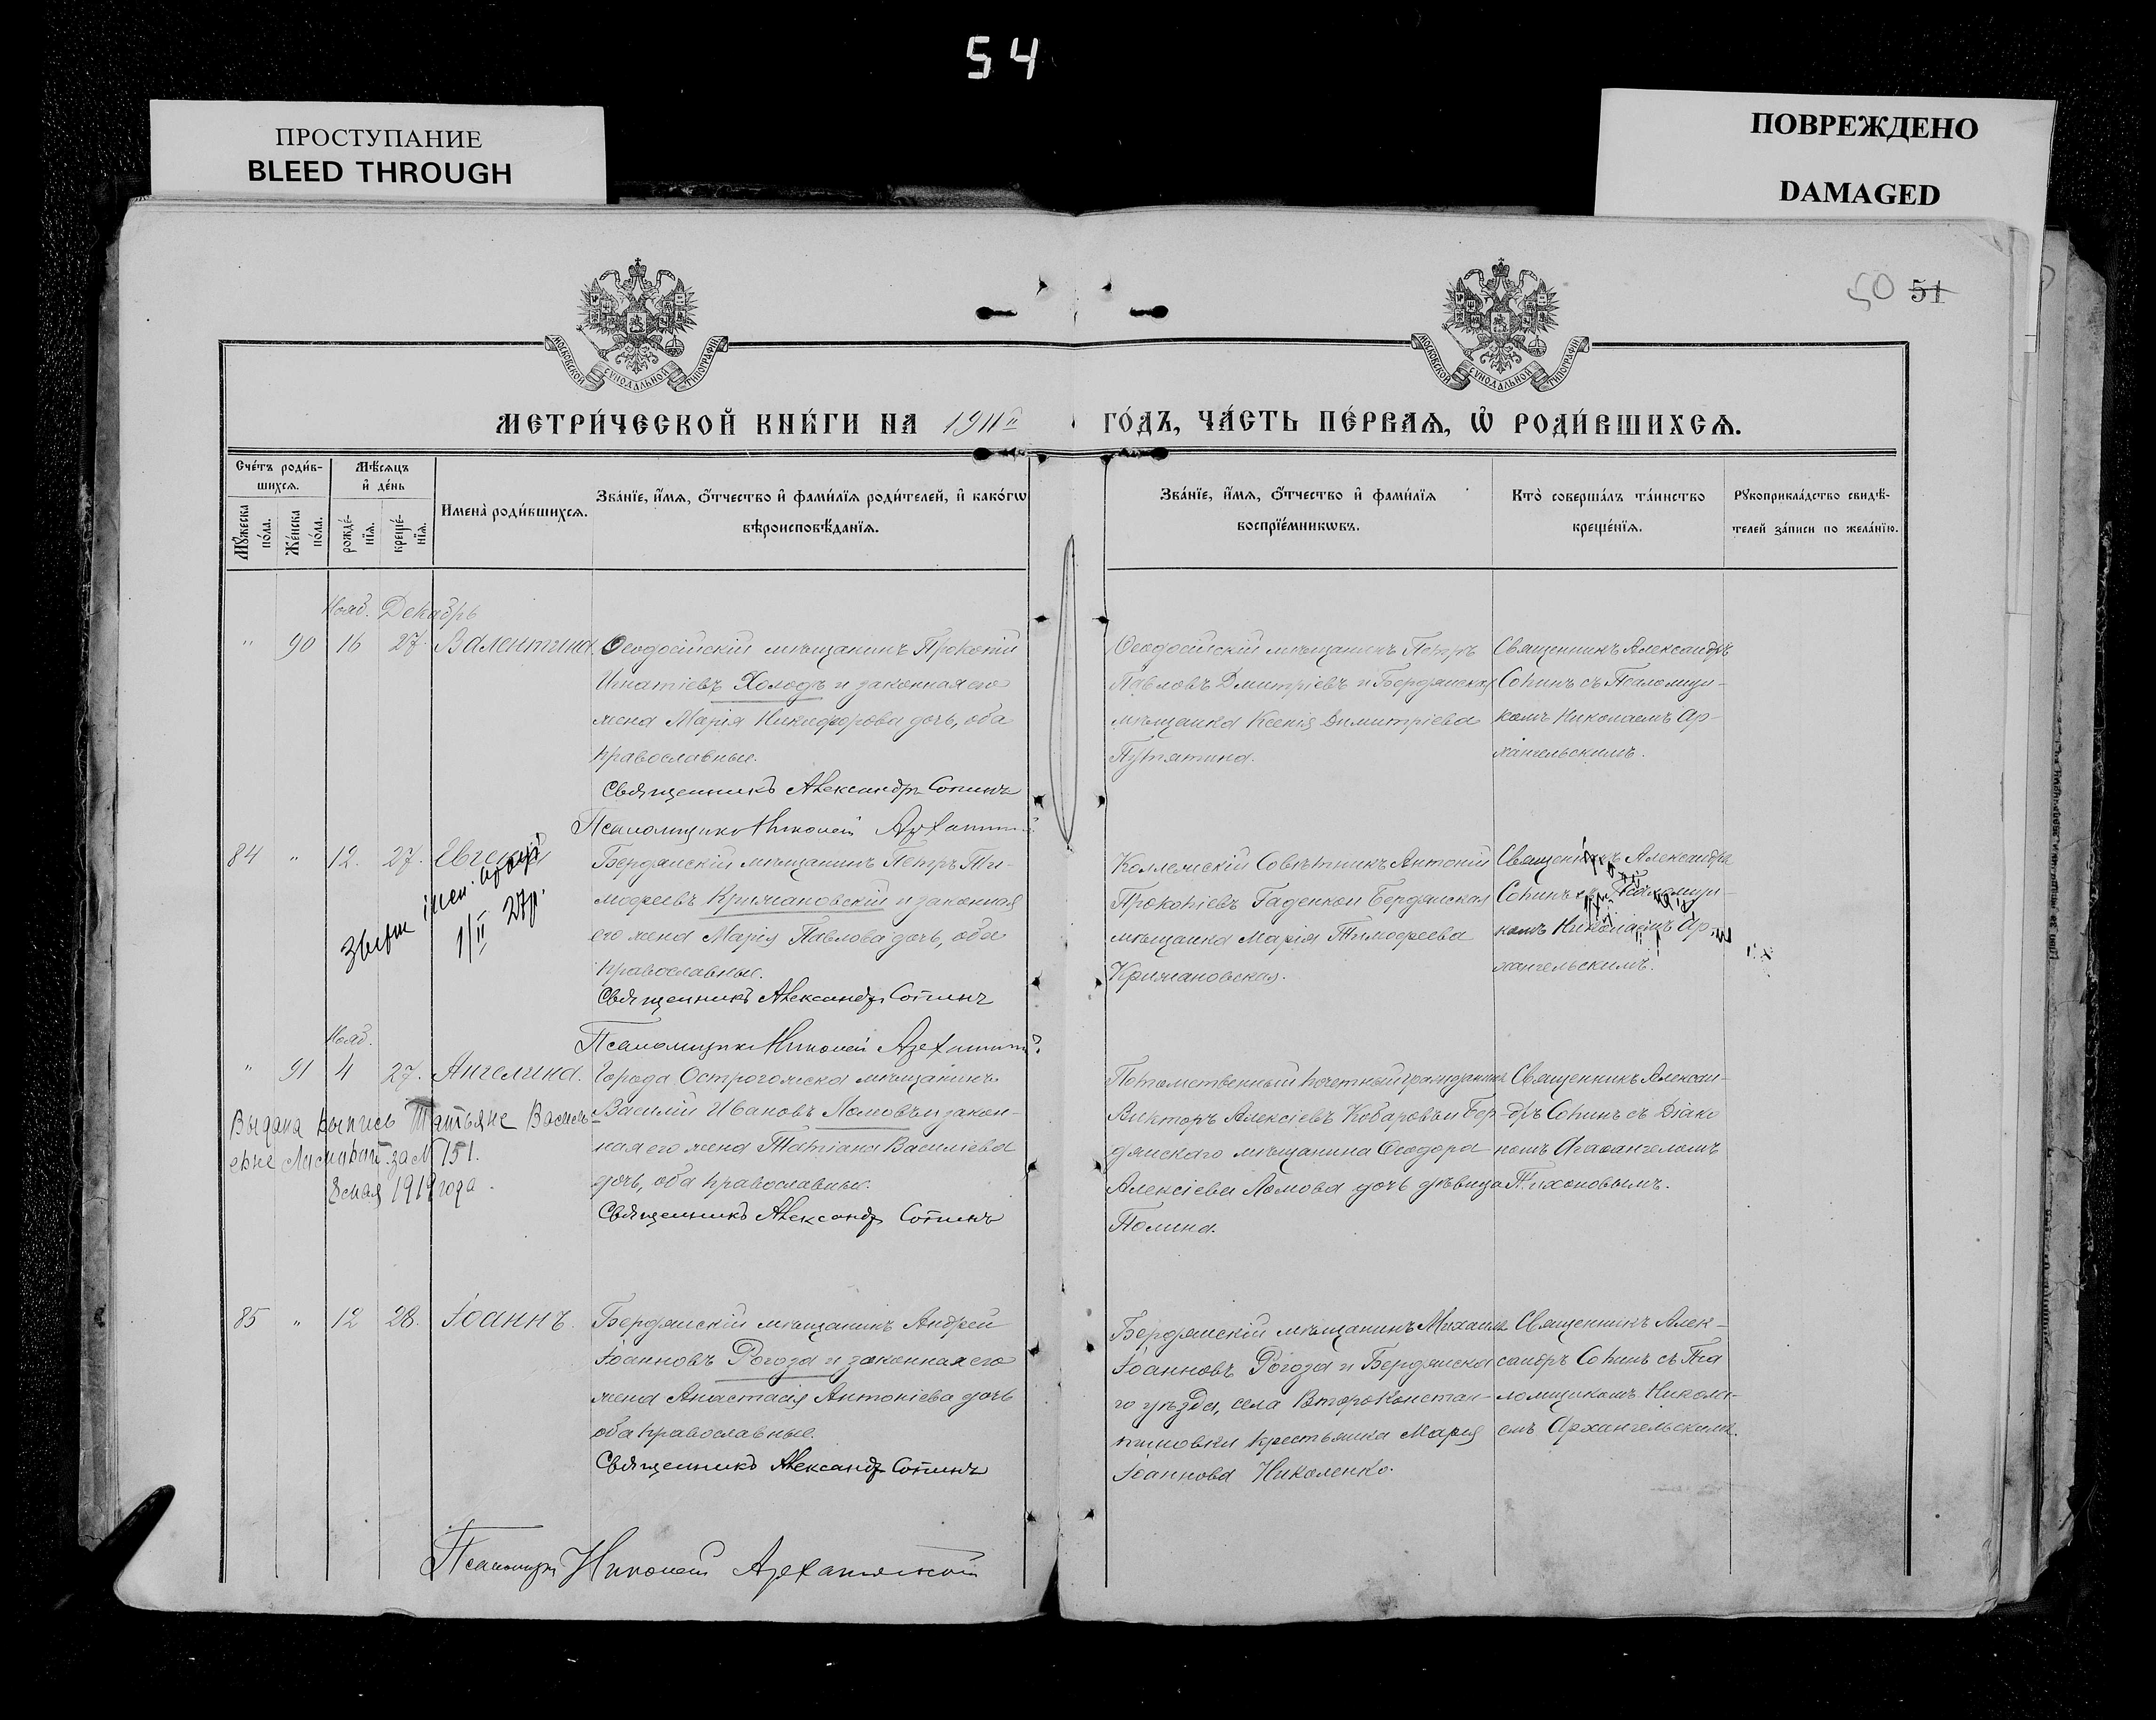 54
ПРОСТУПАНИЕ
BLEED THROUGH
ПОВРЕЖДЕНО
DAMAGED
50 51
МОСКОВСКОЙ СѴНОДАЛЬНОЙ ТИПОГРАФІИ
МОСКОВСКОЙ СѴНОДАЛЬНОЙ ТИПОГРАФІИ
МЕТРИ́ЧЕСКОЙ КНИ́ГИ НА 1911й ГО́ДЪ, ЧА́СТЬ ПЕ́РВАѦ, Ѡ҆ РОДИ́ВШИХСѦ.
Сче́тъ роди́в-
шихсѧ.
Мꙋ́жеска по́ла.
Же́нска по́ла.
Мѣ́сѧцъ
и҆ де́нь
рожде́-
нїѧ.
креще́-
нїѧ.
Имена̀ роди́вшихсѧ.
Зва́нїе, и҆́мѧ, ѻ҆́тчество и҆ фами́лїѧ роди́телей, и҆ како́гѡ
вѣроисповѣ́данїѧ.
Зва́нїе, и҆́мѧ, ѻ҆́тчество и҆ фами́лїѧ
воспрїе́мникѡвъ.
Кто̀ соверша́лъ та́инство
креще́нїѧ.
Рꙋкоприкла́дство свидѣ́-
телей за́писи по жела́нїю.
Нояб. Декабрь
" 90 16 27. Валентина.
Ѳеодосійскій мѣщанинъ Прокопій
Игнатіевъ Холодъ и законная его
жена Марія Никифорова дочь, оба
православные.
Священникъ Александръ Сопинъ
Псаломщикъ Николай Архангельскій
Ѳеодосійскій мѣщанинъ Петръ
Павловъ Дмитріевъ и Бердянская
мѣщанка Ксенія Димитріева
Путятина.
Священникъ Александръ
Сопинъ съ Псаломщи-
комъ Николаемъ Ар-
хангельскимъ.
84 " 12. 27. Евгеній
1/II 27р.
Бердянскій мѣщанинъ Петръ Ти-
мофеевъ Крижановскій и законная
его жена Марія Павлова дочь, оба
православные.
Священникъ Александръ Сопинъ
Псаломщикъ Николай Архангельскій
Коллежскій Совѣтникъ Антоній
Прокопіевъ Гаденко и Бердянская
мѣщанка Марія Тимофеева
Крижановская.
Священникъ Александръ
Сопинъ съ Псаломщи-
комъ Николаемъ Ар-
хангельскимъ.
Нояб.
" 91 4 27. Ангелина.
Выдана выпись Татьяне Василь-
евне за № 151.
8 мая 1919 года
Города Острогожска мѣщанинъ
Василій Ивановъ Ломовъ и закон-
ная его жена Татіана Василіева
дочь, оба православные.
Священникъ Александръ Сопинъ
Потомственный почетный гражданинъ
Викторъ Алексіевъ Кобаровъ и Бер-
дянскаго мѣщанина Ѳеодора
Алексіева Ломова дочь дѣвица
Полина.
Священникъ Алексан-
дръ Сопинъ съ Діако
номъ Агаѳангеломъ
Тихоновымъ.
85 " 12 28. Іоаннъ.
Бердянскій мѣщанинъ Андрей
Іоанновъ Рогоза и законная его
жена Анастасія Антоніева дочь
оба православные.
Священникъ Александръ Сопинъ
Псаломщикъ Николай Архангельскій
Бердянскій мѣщанинъ Михаилъ
Іоанновъ Рогоза и Бердянска
го уѣзда, села Второконстан-
тиновки крестьянка Марія
Іоаннова Николенко.
Священникъ Алек-
сандръ Сопинъ съ Пса
ломщикомъ Никола-
емъ Архангельскимъ.